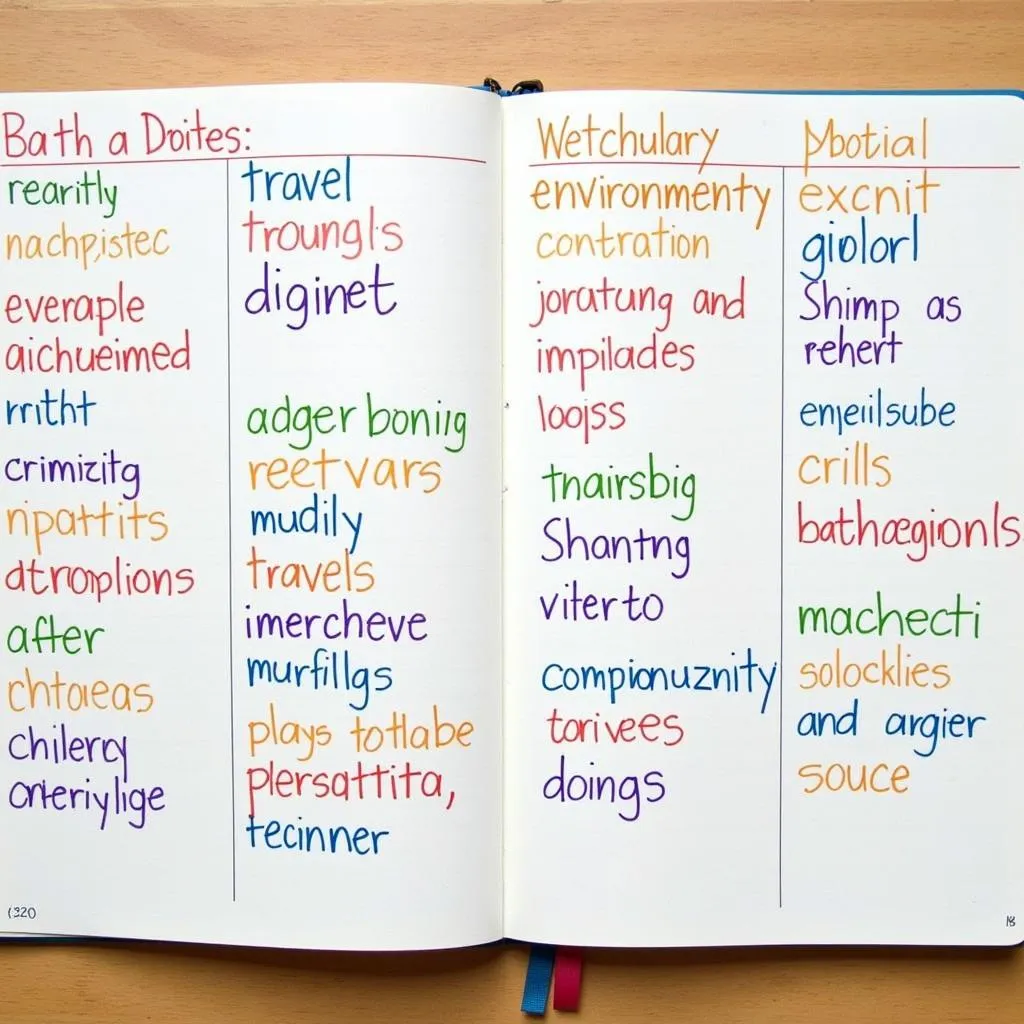 Bath a Doites:
rearitly
nachpistec
everaple
aichueimed
rritht
crimizitg
ripattits
dtroplions
after
chtoreas
chilercy
travel
troungls
diginet
adger bonig
reetvars
mudily
travels
imercheve
murfillgs
plays tothabe
plersattita,
tecinner
(320
Wetchulary
environmenty
contration
joratung and
impilades
loojss
tnairsbig
Shantng
viterto
compionuznity
torivees
doings
excnit
giolorl
Shimp as
rehert
enjeilsube
crills
bathœgionls
machecti
solocklies
and argier
souce